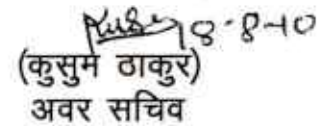 8-8-10
(कुसुम ठाकुर)
अवर सचिव